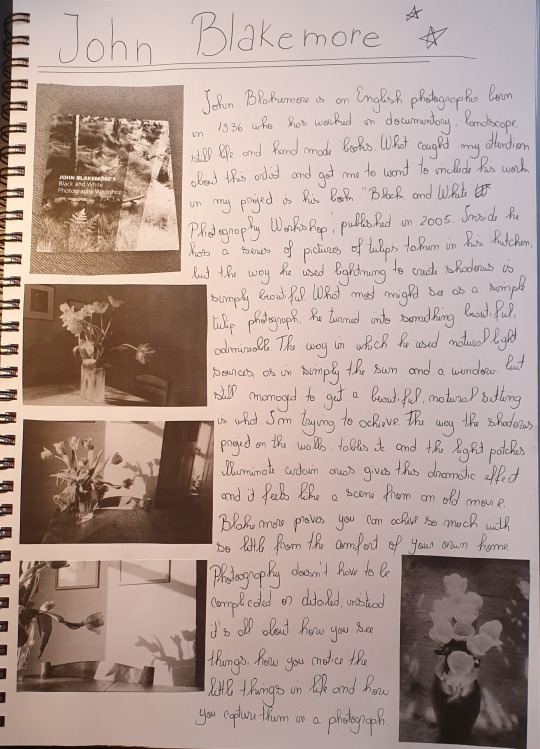 John Blakemore
JOHN BLAKEMORE'S
Black and White
Photography Workshop
John Blakemore is an English photographer born
in 1936 who has worked in documentary, landscape,
still life and hand made books. What caught my attention
about this artist and got me to want to include his work
in my project is his book "Black and White
Photography Workshop", published in 2005. Inside he
has a series of pictures of tulips taken in his kitchen,
but the way he used lightning to create shadows is
simply beautiful. What most might see as a simple
tulip photograph, he turned into something beautiful,
admirable. The way in which he used natural light
sources, as in simply the sun and a window, but
still managed to get a beautiful, natural setting
is what I'm trying to achieve. The way the shadows
project on the walls, tables and the light patches
illuminate certain areas gives this dramatic effect
and it feels like a scene from an old movie.
Blakemore proves you can achive so much with
so little from the comfort of your own home.
Photography doesn't have to be
complicated or detailed, instead
it's all about how you see
things, how you notice the
little things in life and how
you capture them in a photograph.